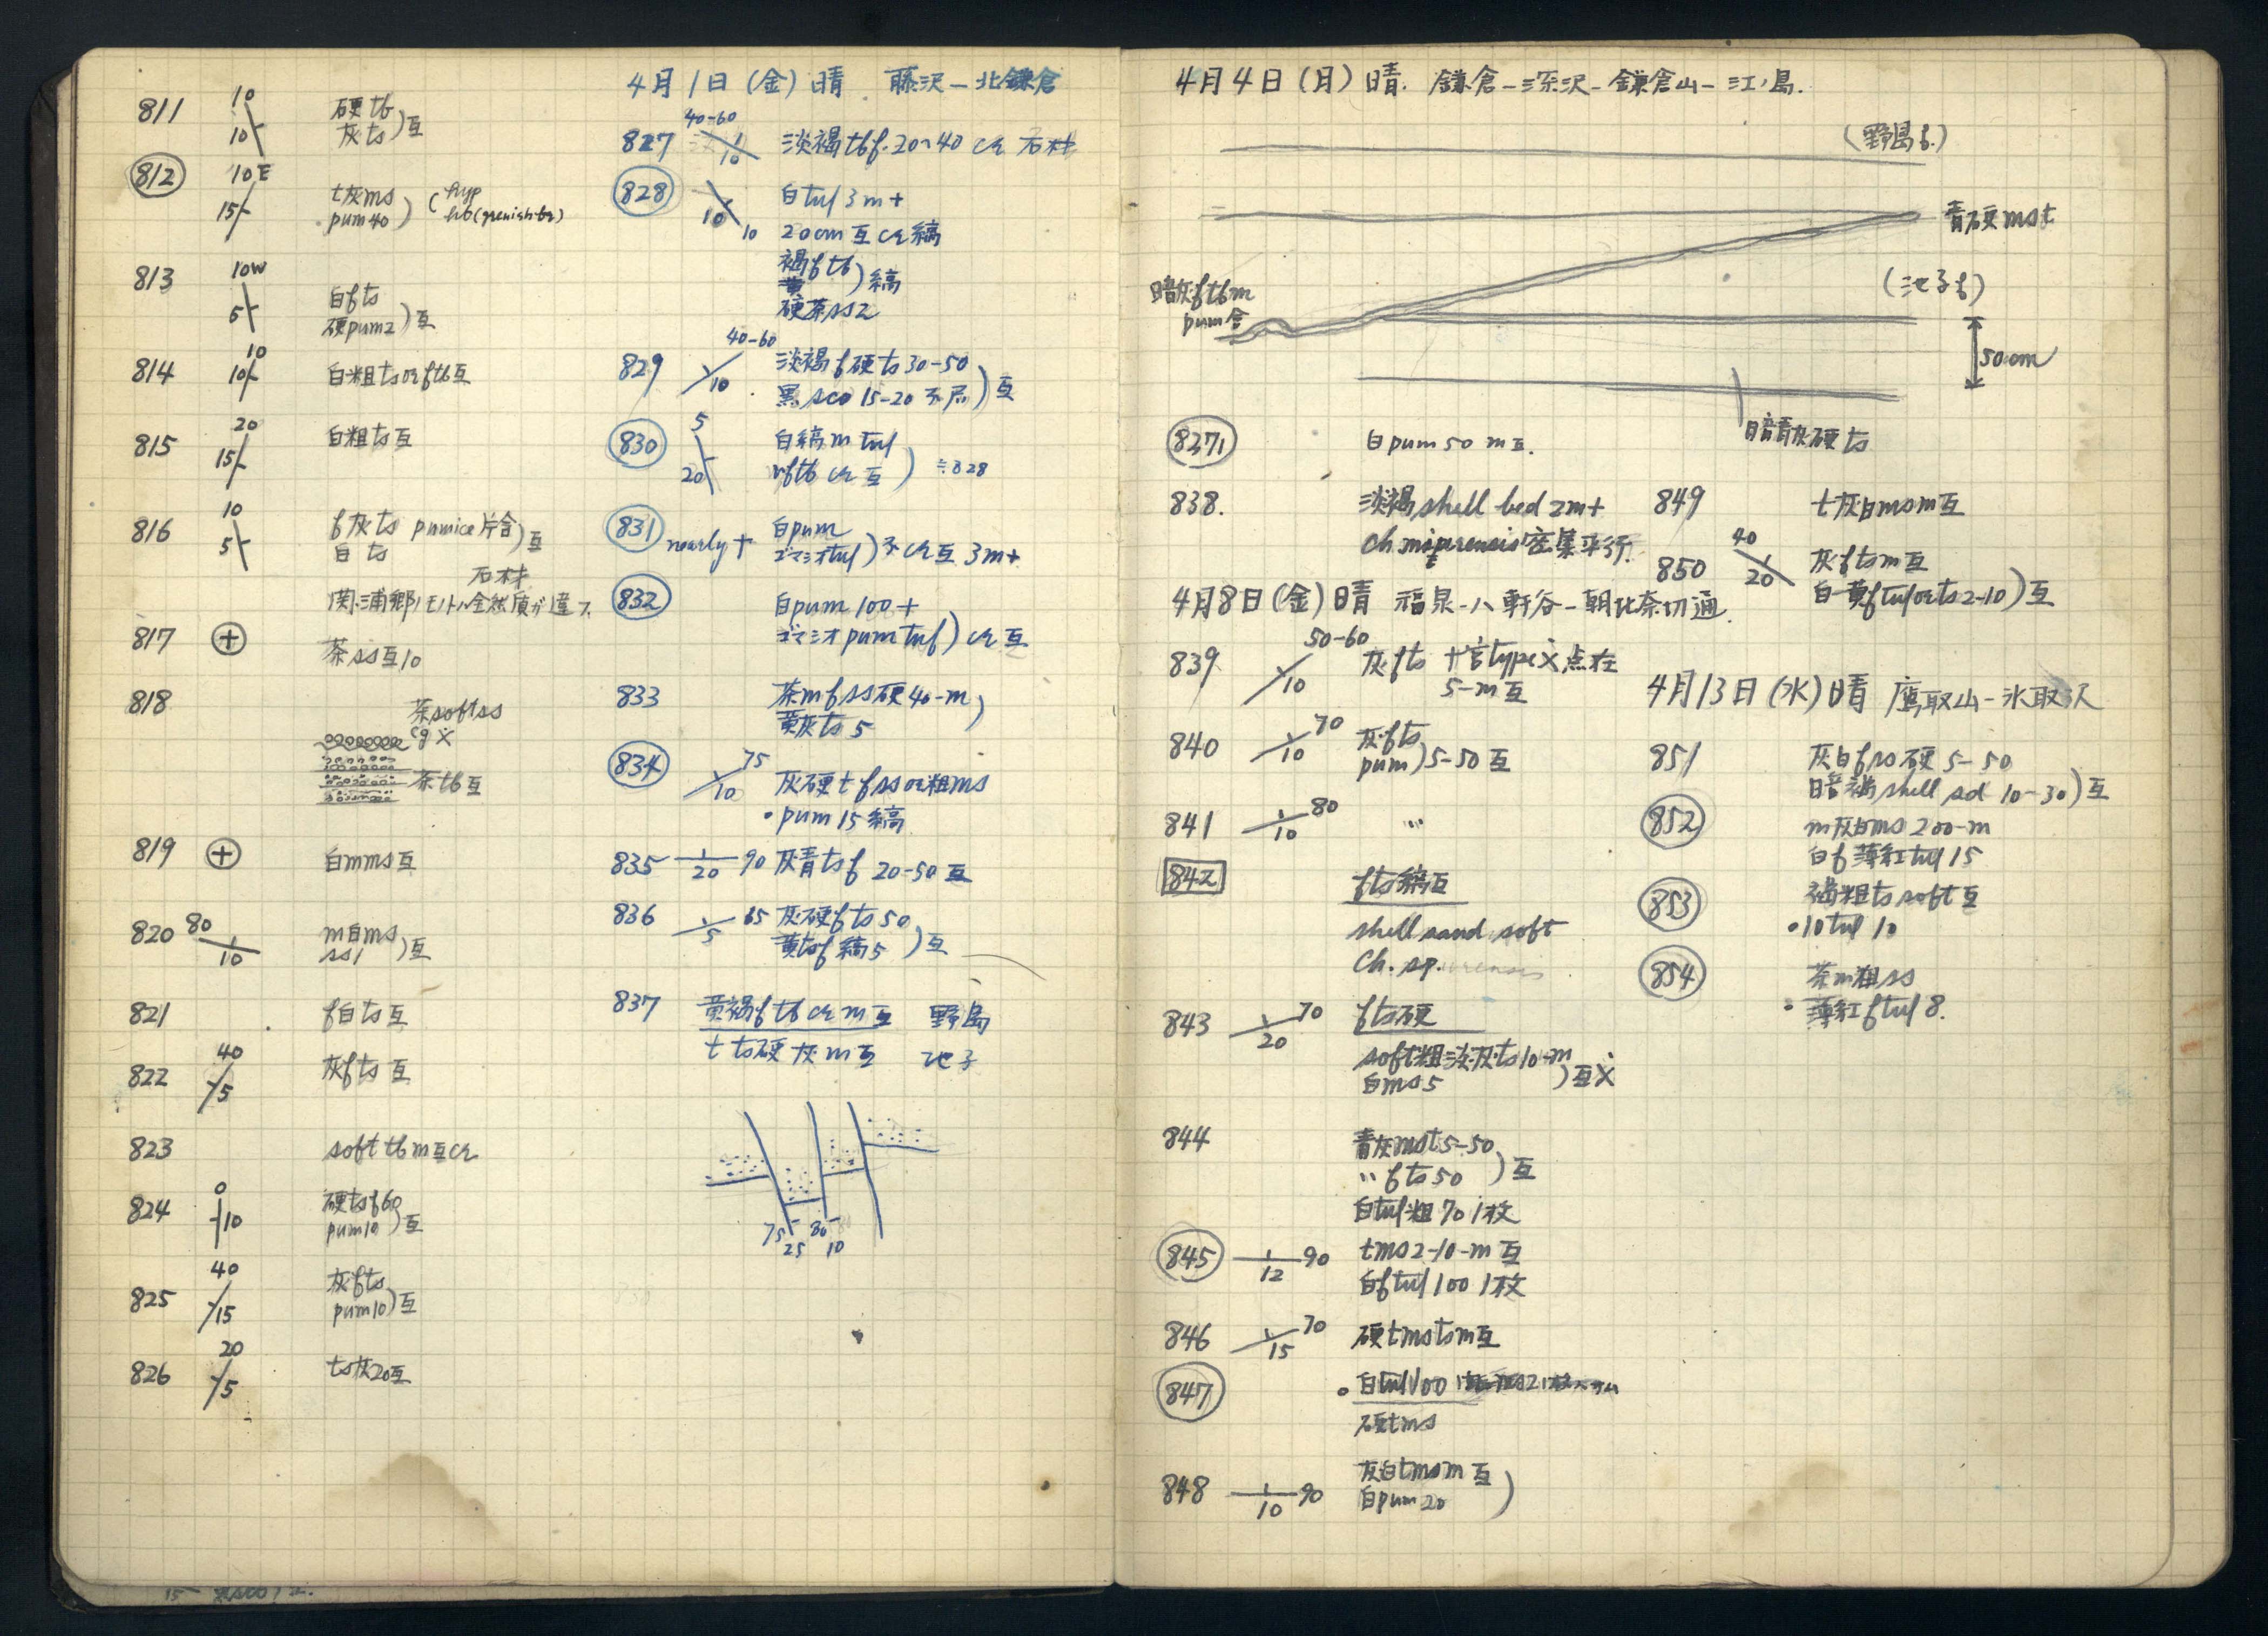 811 10 10 硬tb
灰ts)互
812 10E 15 t灰ms
pum40) (hyp
hb(greenish-br)
813 10W 5 白f ts
硬pum2)互
814 10 10 白粗ts or f tb互
815 20 15 白粗ts互
816 10 5 f灰ts pumice片含
白ts)互
石材
関、浦郷ノモノト全然質ガ違フ
817 茶ss互10
818 茶soft ss
cg
茶tb互
819 白mms互
820 80 10 m白ms
ss1)互
821 f白ts互
822 40 5 灰f ts互
823 soft tb m互cr
824 0 10 硬ts f 60
pum10)互
825 40 15 灰f ts
pum10)互
826 20 5 ts灰20互
4月1日(金)晴 藤沢–北鎌倉
827 40-60 10 淡褐tb f. 20~40 cr 石材
828 10 10 白tuf 3m+
20cm互cr縞
褐f tb
黄)縞
硬茶ss2
829 40-60 10 淡褐f硬ts 30-50
黒sco 15-20)互
830 5 20 白縞m tuf
f tb cr互) ≒828
831 nearly + 白pum
ゴマシオtuf)cr互 3m+
832 白pum 100+
ゴマシオpum tuf)cr互
833 茶m f ss硬40-m
黄灰ts 5)
834 75 10 灰硬t f ss or粗ms
・pum 15縞
835 20 90 灰青ts f 20-50互
836 5 65 灰硬f ts 50
黄ts f縞5)互
837 黄褐f tb cr m互 野島
t ts硬灰m互 池子
75 80
25 10
4月4日(月)晴. 鎌倉–深沢–鎌倉山–江ノ島.
(野島f.)
青硬mst
(池子f)
暗灰f tb m
pum含
50cm
暗青灰硬ts
8271 白pum 50 m互.
838. 淡褐shell bed 2m+
密集平行.
4月8日(金)晴 福泉–八軒谷–朝比奈切通.
839 50-60 10 灰f ts 十宮type点在
5-m互
840 70 10 灰f ts
pum)5-50互
841 80 10 〃
842 f ts縞互
shell sand soft
Ch. sp.
843 70 20 f ts硬
soft粗淡灰ts 10-m
白ms 5)互
844 青灰mst 5-50
〃 f ts 50)互
白tuf粗70 1枚
845 12 90 t ms 2-10-m互
白f tuf 100 1枚
846 70 15 硬t ms ts m互
847 ・白tuf 100
硬t ms
848 10 90 灰白t ms m互
白pum 20)
849 t灰白ms m互
850 40 20 灰f ts m互
白-黄f tuf or ts 2-10)互
4月13日(水)晴 鷹取山–氷取沢
851 灰白f ss硬5-50
暗褐shell sd 10-30)互
852 m灰白ms 200-m
白f薄紅tuf 15
853 褐粗ts soft互
・10 tuf 10
854 茶m粗ss
・薄紅f tuf 8.